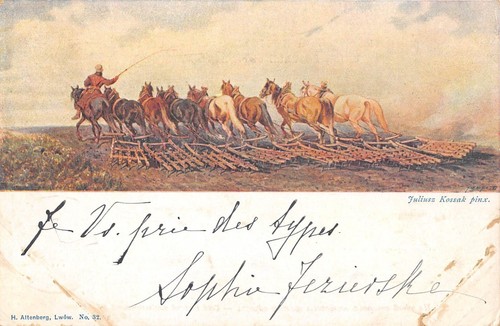 Juliusz Kossak pinx.
je Vs. prie des types.
Sophie Jezierska
H. Altenberg, Lwów. No. 32.